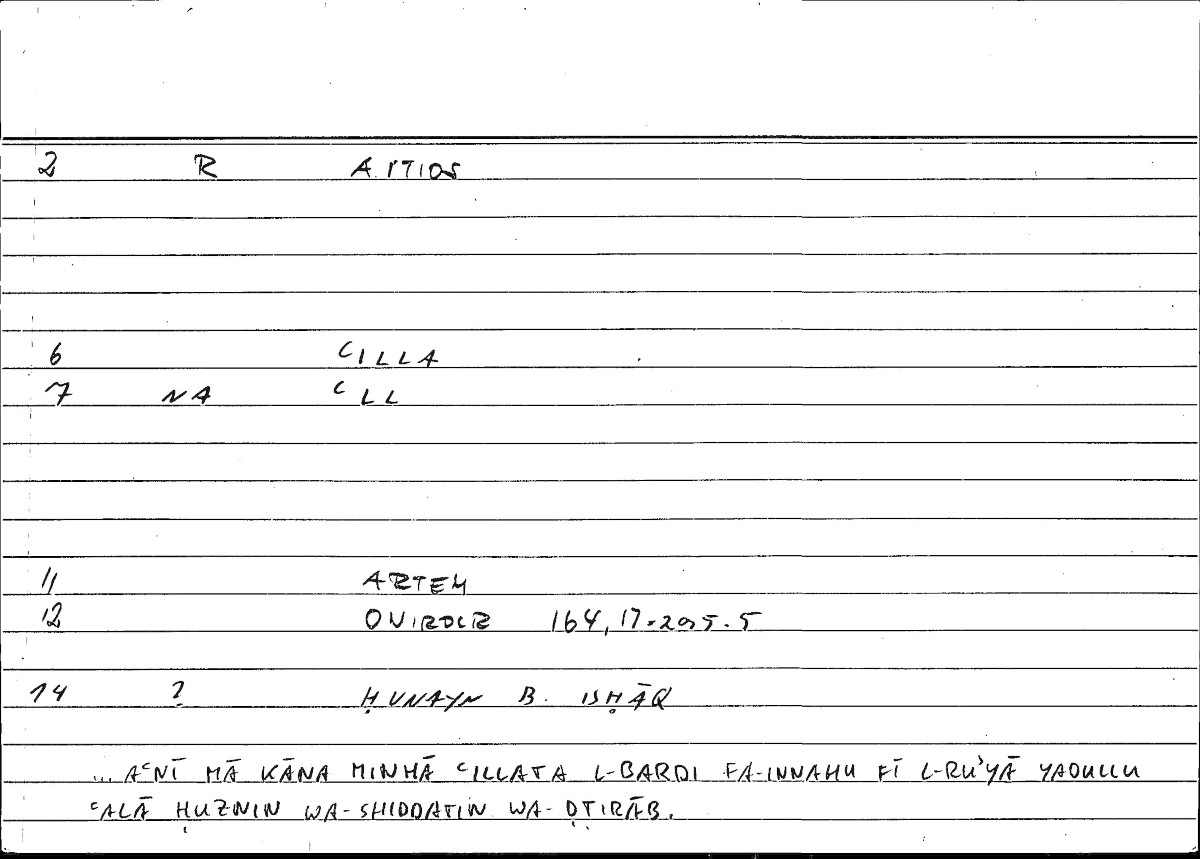 2 R AITIOS
6 ʿILLA
7 NA ʿLL
11 ARTEM
12 ONIROCR 164,17 = 205.5
14 ? ḤUNAYN B. ISḤĀQ
... AʿNĪ MĀ KĀNA MINHĀ ʿILLATA L-BARDI FA-INNAHU FĪ L-RUʾYĀ YADULLU
ʿALĀ ḤUZNIN WA-SHIDDATIN WA-ḌṬIRĀB.